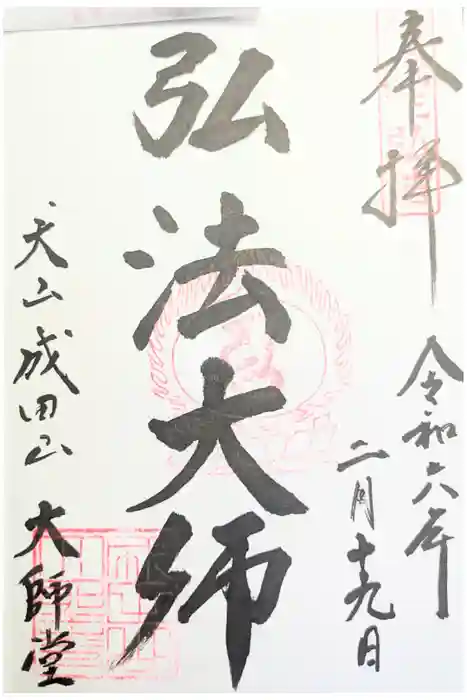 奉拝
令和六年
二月十九日
弘法大師
天山成田山
大師堂